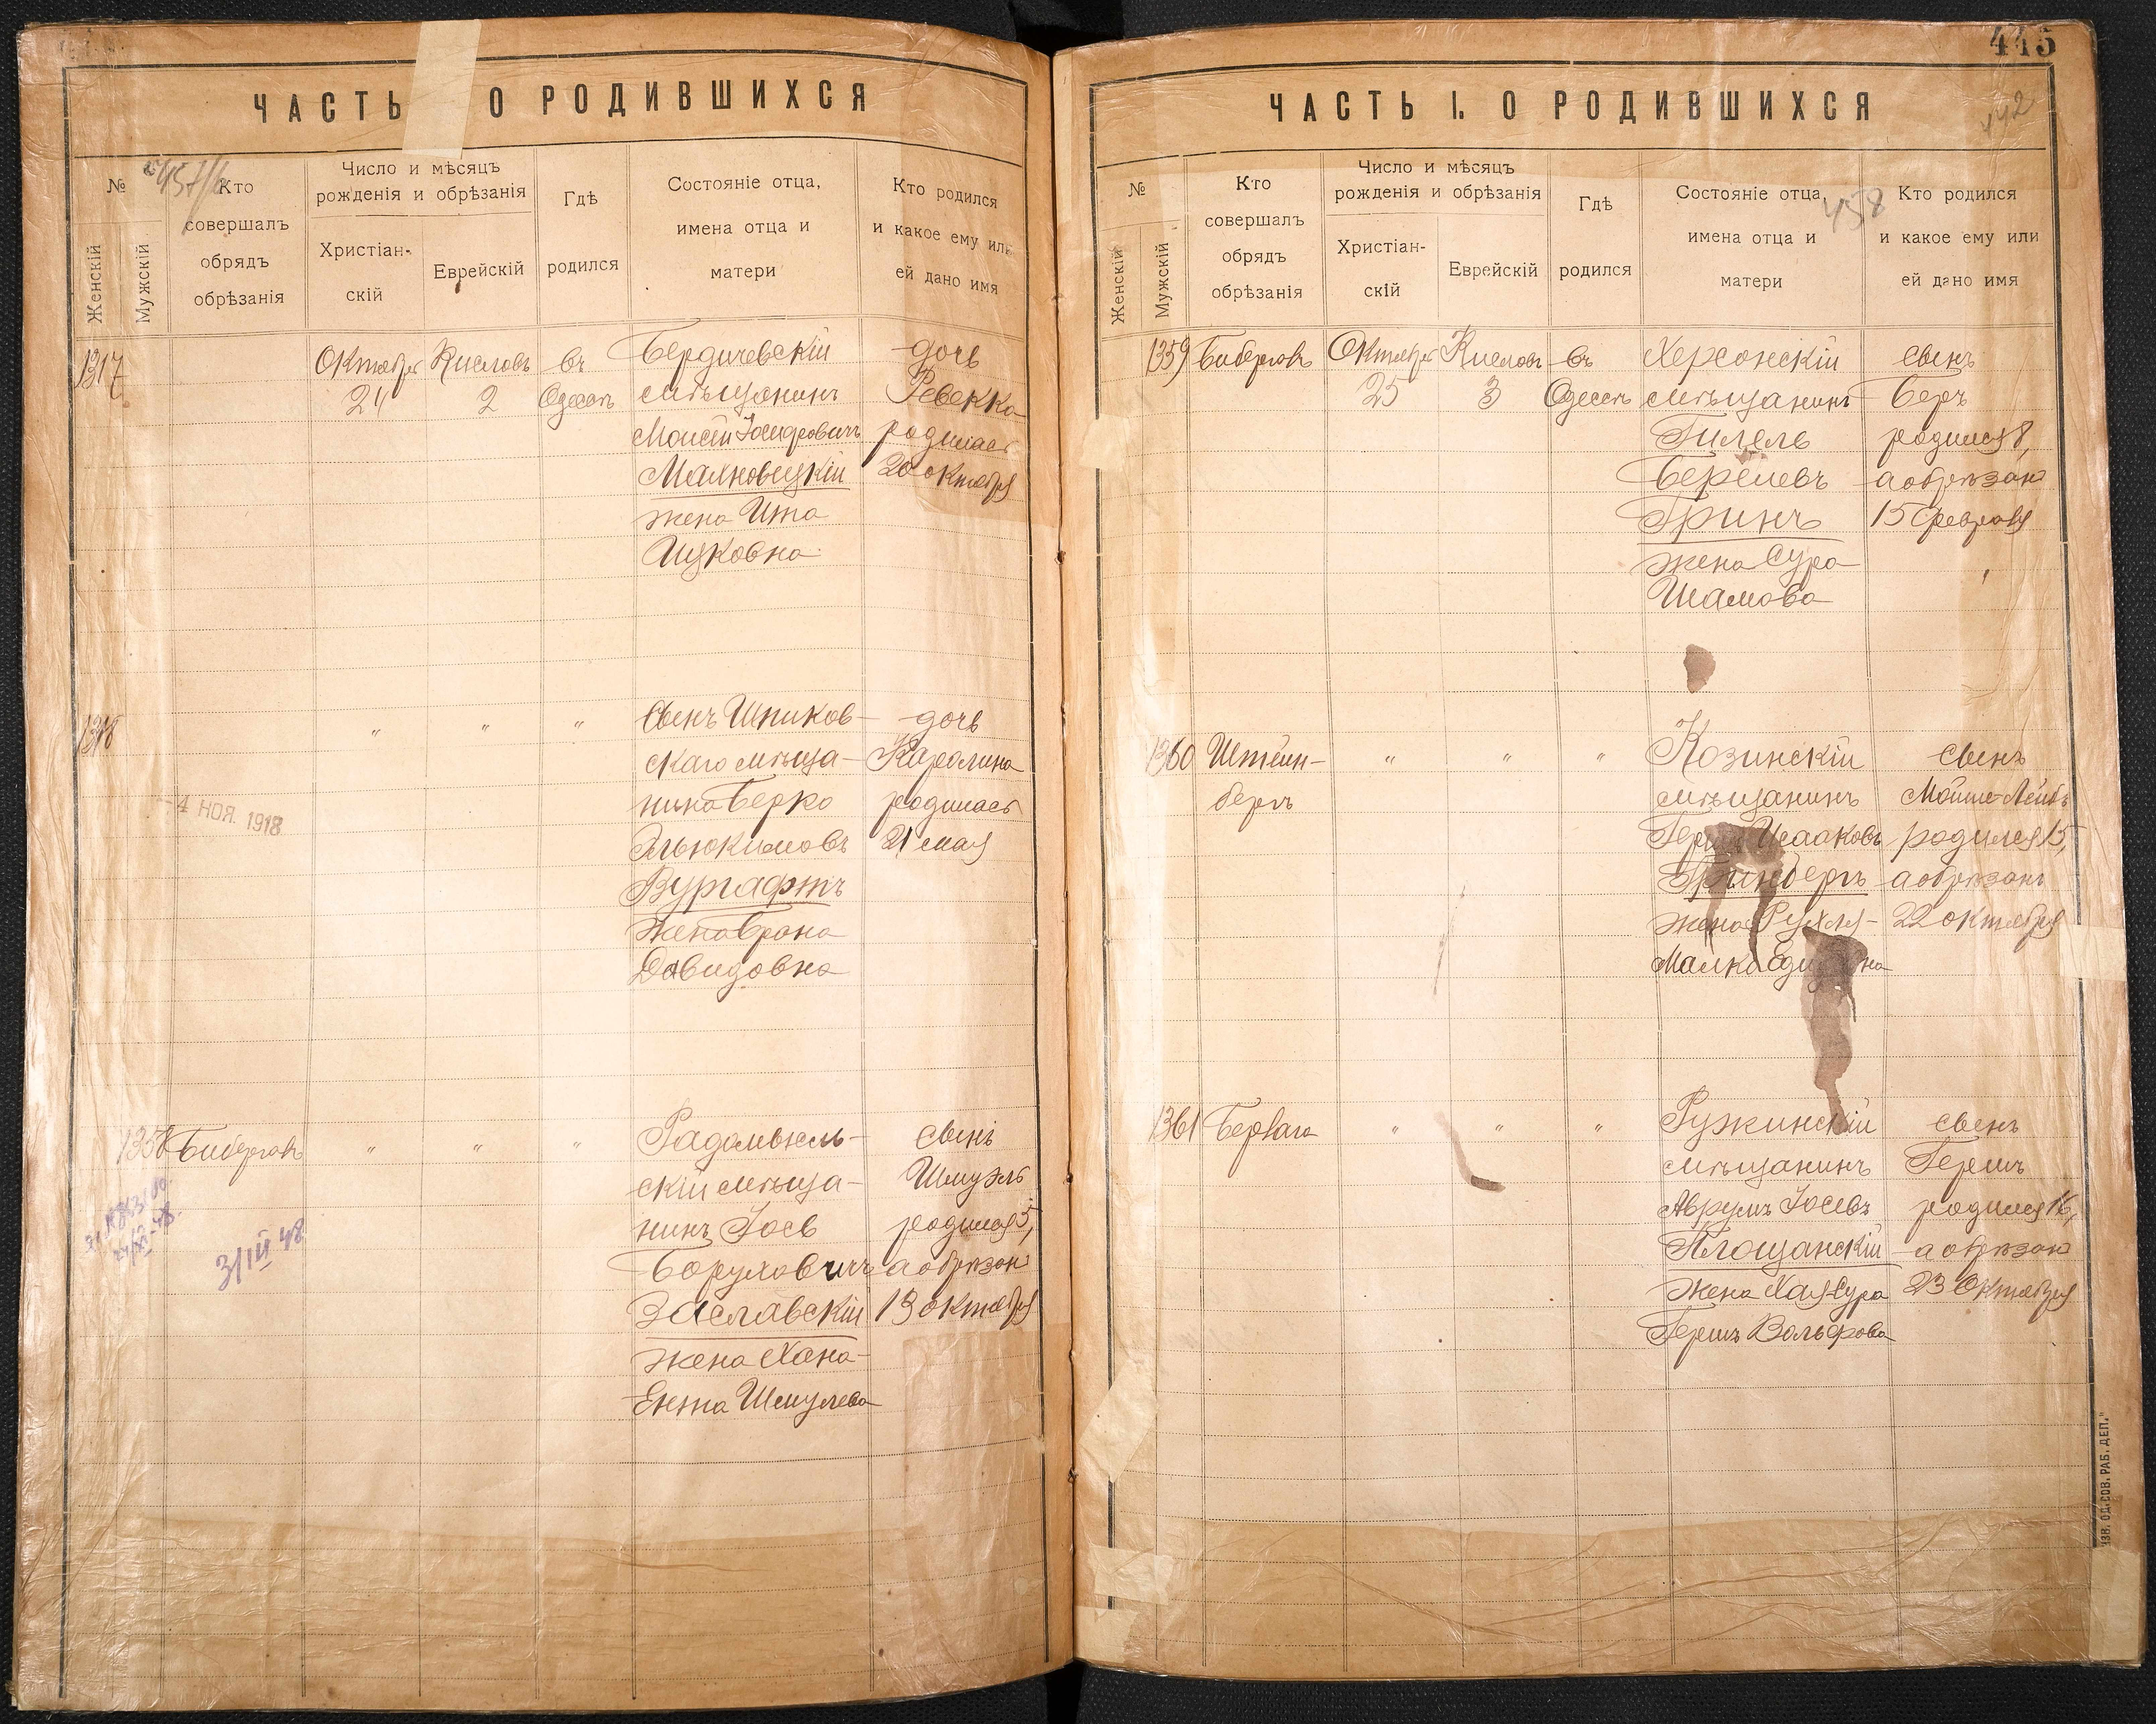 ЧАСТЬ О РОДИВШИХСЯ
№
Женскій
Мужскій
Кто
совершалъ
обрядъ
обрѣзанія
Число и мѣсяцъ
рожденія и обрѣзанія
Христіан-
скій
Еврейскій
Гдѣ
родился
Состояніе отца,
имена отца и
матери
Кто родился
и какое ему или
ей дано имя
1317
Октября
24
Кислов
2
въ
Одессѣ
Бердичевскій
мѣщанинъ
Моисей Іосифовичъ
Маяновецкій
жена Ита
Ицковна
дочь
Ревекка
родилась
20 октября
1318
"
"
"
Сынъ Шпиков-
скаго мѣща-
нина Берко
Эльюкимовъ
Вургафтъ
жена Брана
Давидовна
дочь
Каролина
родилась
21 мая
4 НОЯ. 1918
1358
Бибергалъ
"
"
"
Радомысль-
скій мѣща-
нинъ Іось
Боруховичъ
Заславскій
жена Хана-
Ента Шмулева
сынъ
Шмуэль
родился 5,
а обрѣзан
13 октября
3/III 48
ЧАСТЬ I. О РОДИВШИХСЯ
445
442
458
№
Женскій
Мужскій
Кто
совершалъ
обрядъ
обрѣзанія
Число и мѣсяцъ
рожденія и обрѣзанія
Христіан-
скій
Еврейскій
Гдѣ
родился
Состояніе отца,
имена отца и
матери
Кто родился
и какое ему или
ей дано имя
1359
Бибергалъ
Октября
25
Кислов
3
въ
Одессѣ
Херсонскій
мѣщанинъ
Гилель
Берелевъ
Гринъ
жена Сура
Шамова
сынъ
Беръ
родился 8,
а обрѣзан
15 февраля
1360
Штейн-
бергъ
"
"
"
Козинскій
мѣщанинъ
Исааковъ
Гринбергъ
жена Рухля-
Малка
сынъ
Мойше-Лейбъ
родился 15,
а обрѣзанъ
22 октября
1361
"
"
"
Ружинскій
мѣщанинъ
Аврумъ Іосевъ
Площанскій
жена Хая-Сура
Гершъ Вольфова
сынъ
Гершъ
родился 16,
а обрѣзан
23 Октября
ИЗВ. ОД. СОВ. РАБ. ДЕП."